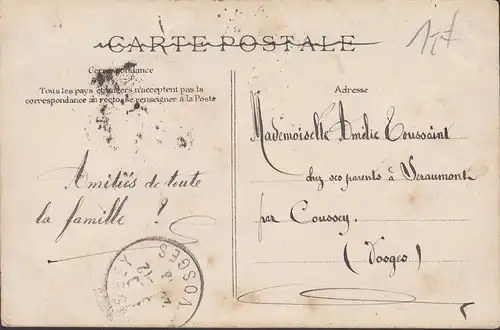 CARTE POSTALE
Correspondance
Tous les pays étrangers n'acceptent pas la
correspondance au recto se renseigner à la Poste
Adresse
Amitiés de toute
la famille ?
Mademoiselle Amélie Toussaint
chez ses parents à Seraumont
par Coussey.
(Vosges)